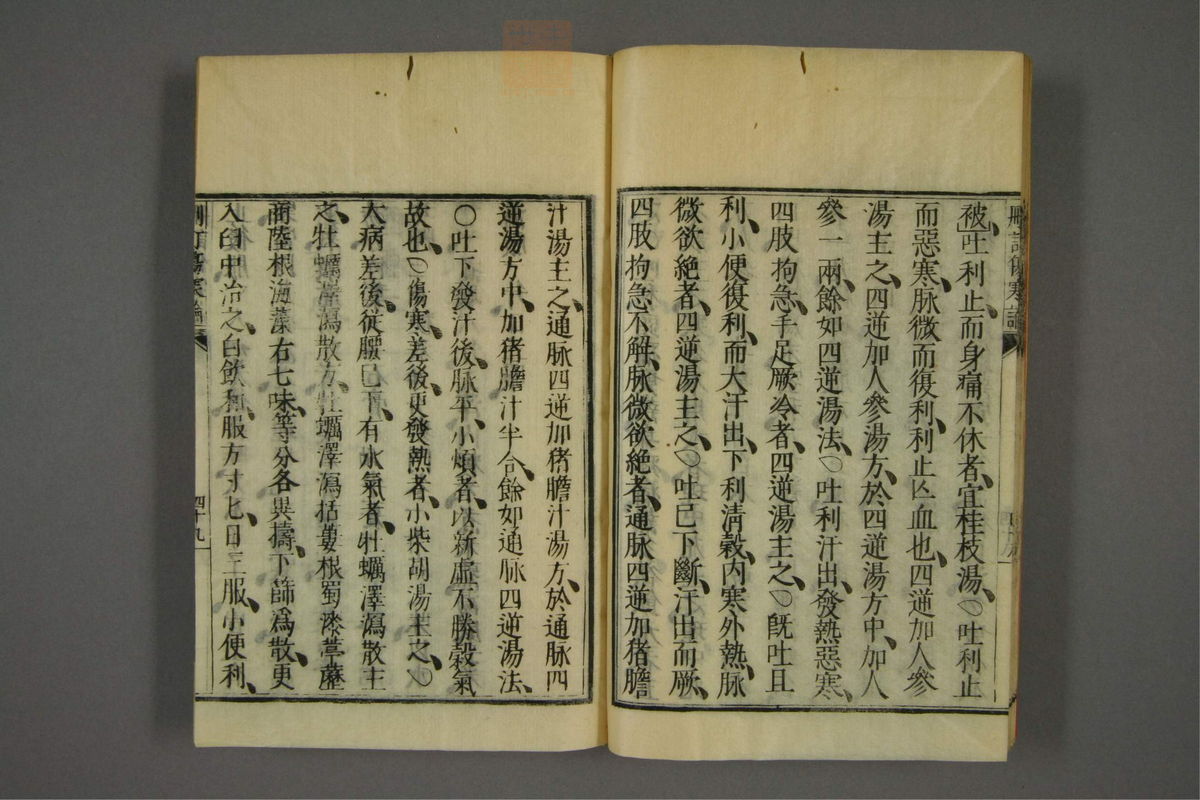 刪訂傷寒論
被吐利止而身痛不休者宜桂枝湯〇吐利止
而惡寒脉微而復利利止亾血也四逆加人參
湯主之四逆加人參湯方於四逆湯方中加人
參一兩餘如四逆湯法〇吐利汗出發熱惡寒
四肢拘急手足厥冷者四逆湯主之〇既吐且
利小便復利而大汗出下利清穀內寒外熱脉
微欲絶者四逆湯主之〇吐已下斷汗出而厥
四肢拘急不解脉微欲絶者通脉四逆加猪膽
汁湯主之通脉四逆加猪膽汁湯方於通脉四
逆湯方中加猪膽汁半合餘如通脉四逆湯法
〇吐下發汗後脉平小煩者以新虛不勝穀氣
故也〇傷寒差後更發熱者小柴胡湯主之〇
大病差後從腰已下有水氣者牡蠣澤瀉散主
之牡蠣澤瀉散方牡蠣澤瀉括蔞根蜀漆葶藶
商陸根海藻右七味等分各與擣下篩爲散更
入臼中冶之白飲和服方寸匕日三服小便利
刪訂傷寒論
四十九